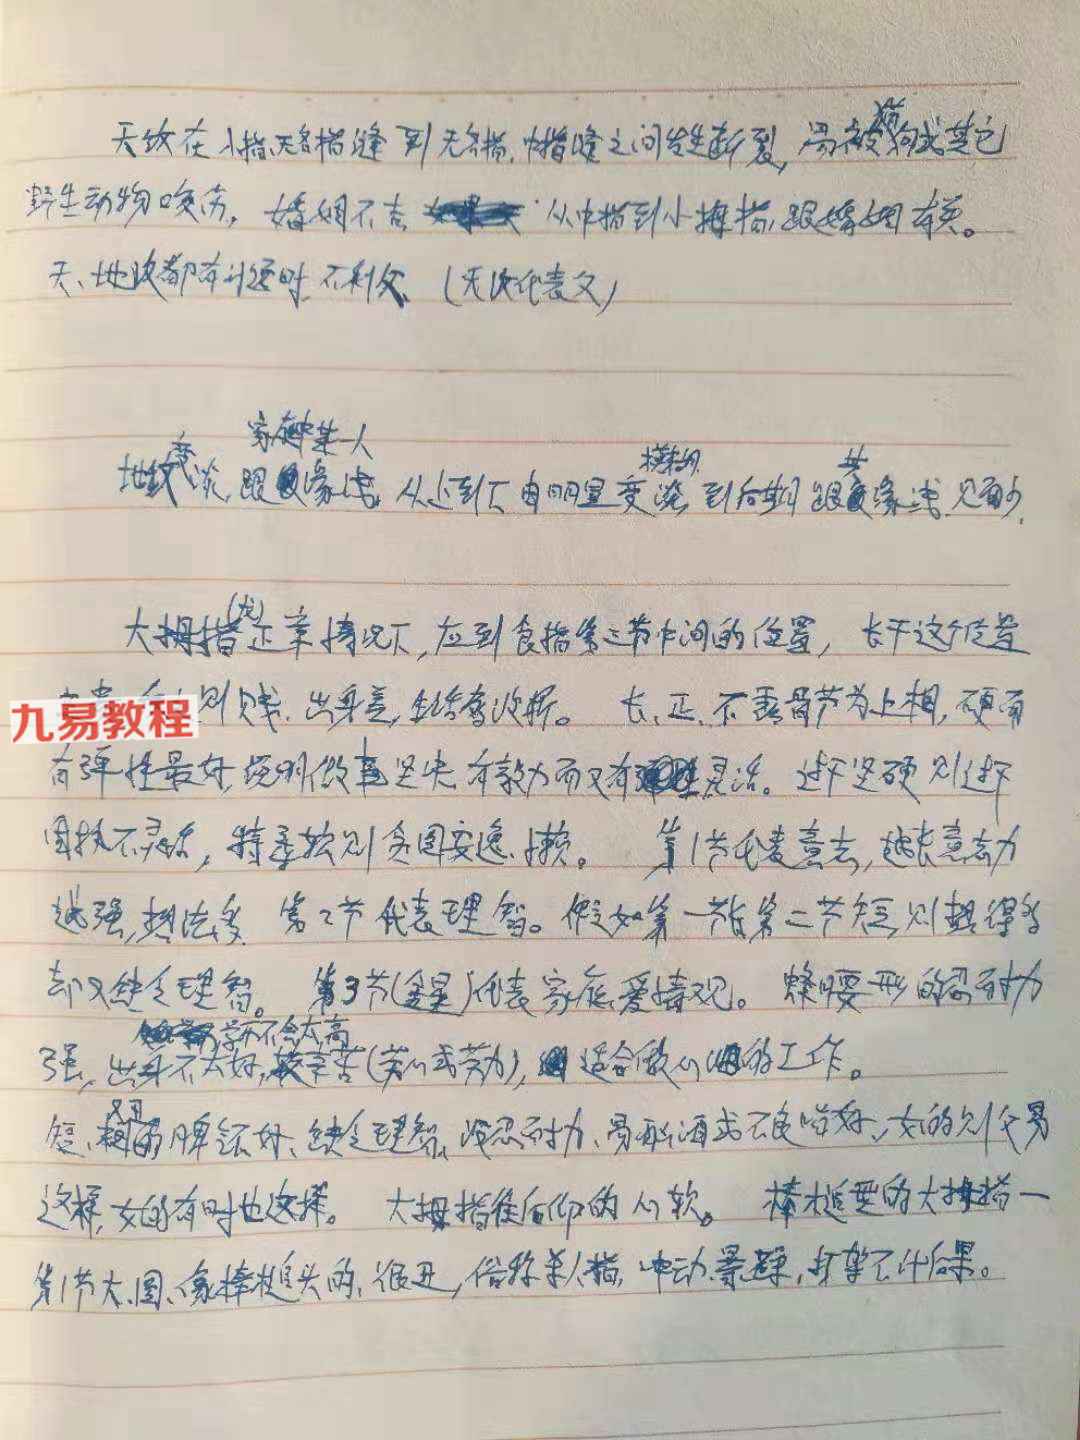 天纹在小指、无名指缝到无名指、中指缝之间发生断裂，易被猫狗或其它
野生动物咬伤，婚姻不吉 从中指到小拇指，跟婚姻有关。
天、地纹都有问题时，不利父，（天纹代表父）
家庭中某一人
地纹变淡，跟缘浅，从上到下由明显变淡，到后期跟缘浅，见面少，
模糊 其
大拇指(龙)正常情况下，应到食指第三节中间的位置，长于这个位置
九易教程
则贱，出身差，生活奔波折。 长、正、不露骨节为上相，硬而
有弹性最好，说明做事坚决，有毅力而又有灵活。过于坚硬则过于
固执不灵活，特柔软则贪图安逸、懒。 第1节代表意志，越长意志力
越强，想法多 第2节代表理智。假如第一节长第二节短，则想得多
却又缺乏理智。 第3节(金星)代表家庭、爱情观。 蜂腰形的忍耐力
学历不会太高
强，出身不太好，较辛苦(劳心或劳力)，适合做心的工作。
短、粗的脾气不好、缺乏理智、没忍耐力、易酗酒或不良嗜好、女的则丈夫易
这样，女的有时也这样。 大拇指往后仰的心软。 棒槌型的大拇指一
第1节大、圆、像棒槌头的，很丑，俗称杀人指，冲动、暴躁，打架不计后果。